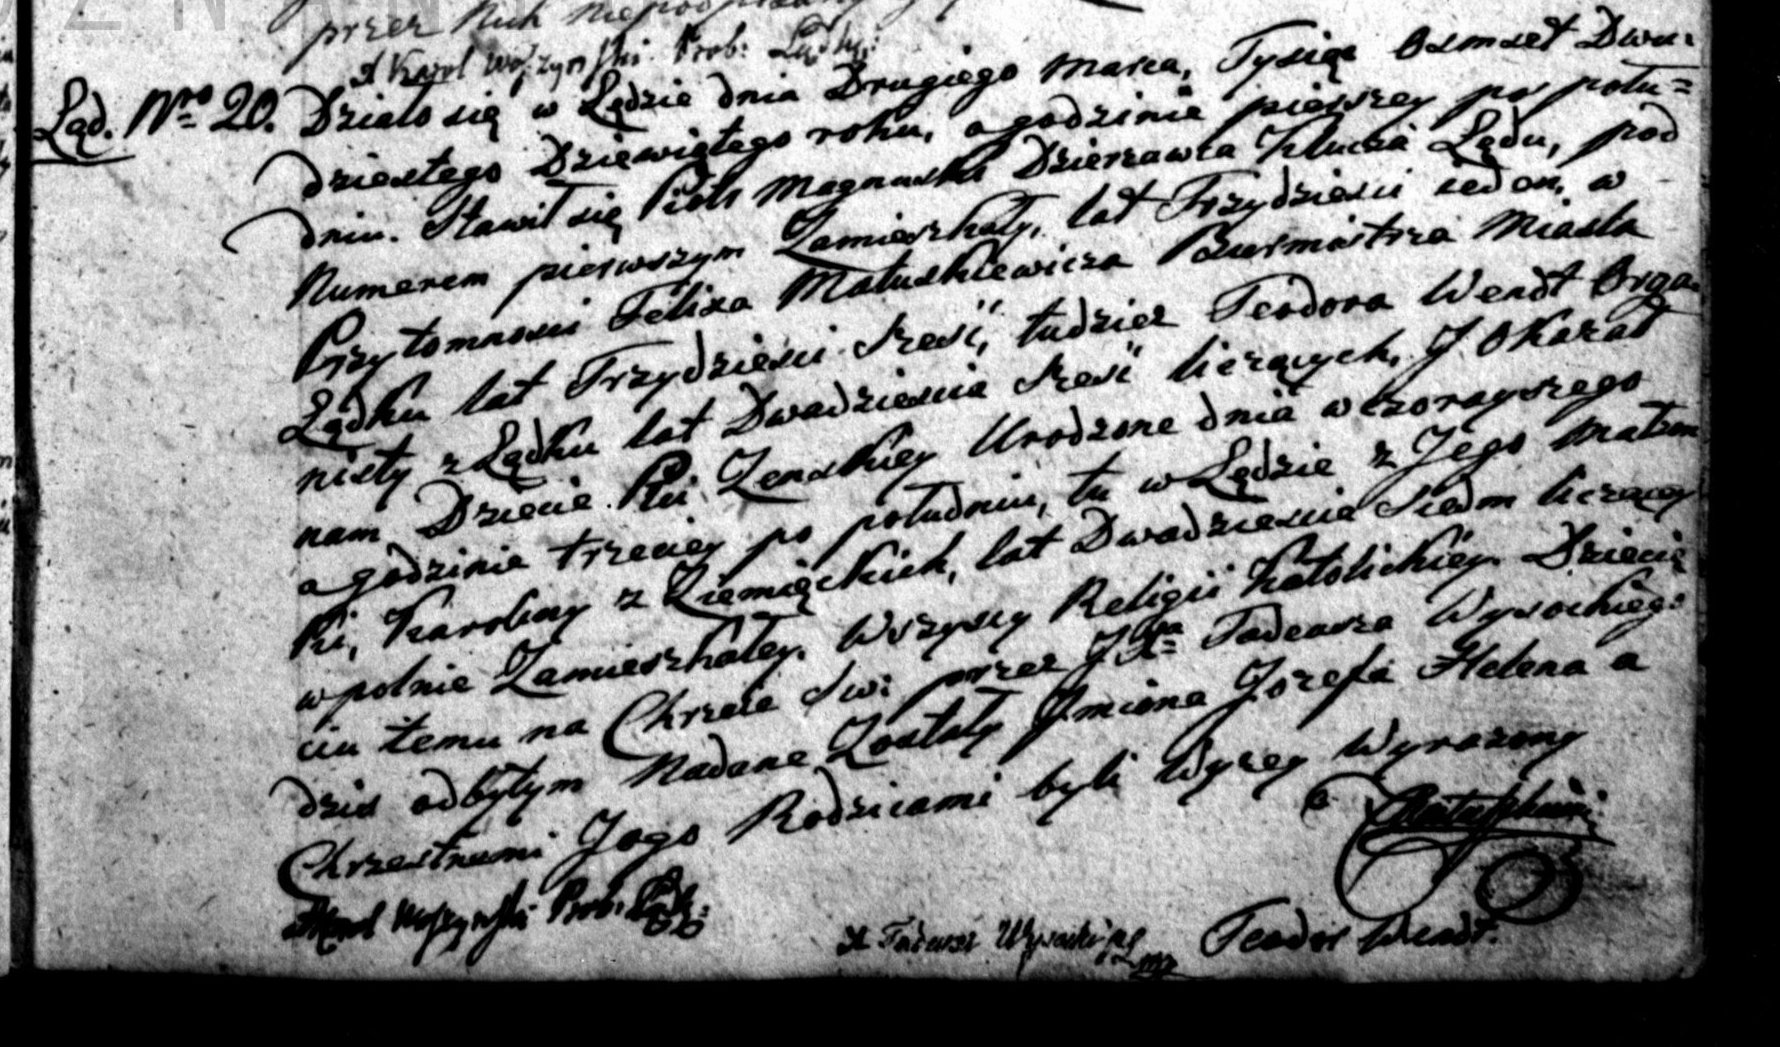 Z N A N
przez Nich niepodpisany
X Karol Wojzynski Prob: Lądz:
Ląd. Nro 20. Działo się w Lędzie dnia Drugiego Marca, Tysiąc Osmset Dwu:
dziestego Dziewiątego roku, o godzinie pierszey po połu=
dniu. Stawił się Piotr Magnuski Dzierzawca Klucza Lędu, pod
Numerem pierwszym Zamieszkały, lat Trzydziesci siedm, w
Przytomnosci Felixa Matuskiewicza Burmistrza Miasta
Lądku lat Trzydziesci Szesć, tudziez Teodora Wendt Orga-
nisty z Lądku lat Dwadziescia Szesć liczących, J Okazał
nam Dziecie Płci Zenskiey Urodzone dnia wczorayszego
o godzinie trzeciey po południu, tu w Lędzie z Jego Małzon
ki, Karoliny z Ziemięckich, lat Dwadziescia Siedm liczącey
wpolnie Zamieszkałey. Wszyscy Religii Katolickiey. Dziecię
ciu temu na Chrzcie Sw: przez JXa Tadeusza Wysockiego
dzis odbytym Nadane Zostały Jmiona Jozefa Helena a
Chrzestnemi Jego Rodzicami byli Wyzey Wyrazony
X Karol Wojzynski Prob. Lądz:
X Tadeusz Wysocki
Teodor Wendt.